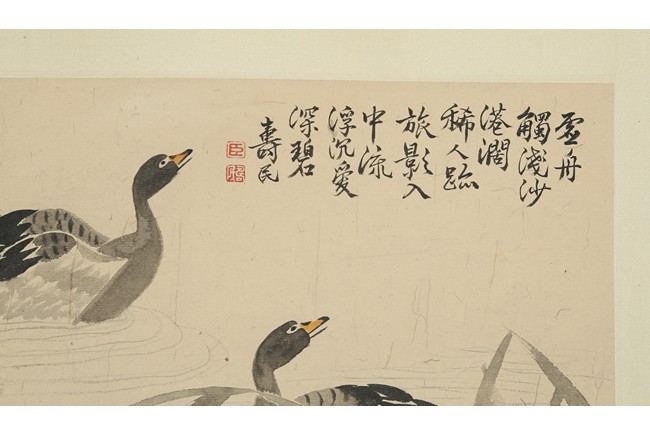 虛舟
觸淺沙
港濶
稀人跡
旅影入
中流
浮沉愛
深碧
壽民
臣